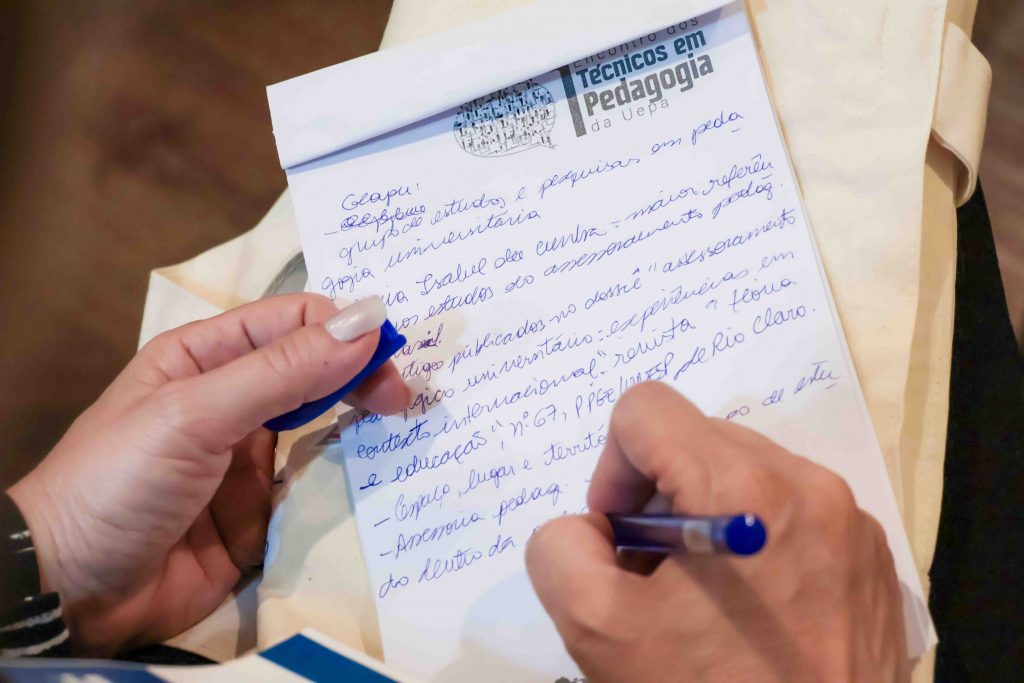 Encontro dos
Técnicos em
Pedagogia
da Uepa
Geapu:
- grupo de estudos e pesquisas em peda
gogia universitária
Isabel da Cunha = maior referên
nos estudos do assessoramento pedag.
publicados no dossiê "assessoramento
pedagógico universitário: experiências em
contexto internacional" revista "teoria
e educação", nº 67, PPGE/UNESP de Rio Claro.
- Espaço, lugar e territó de estu
- Assessoria pedag.
do dentro da